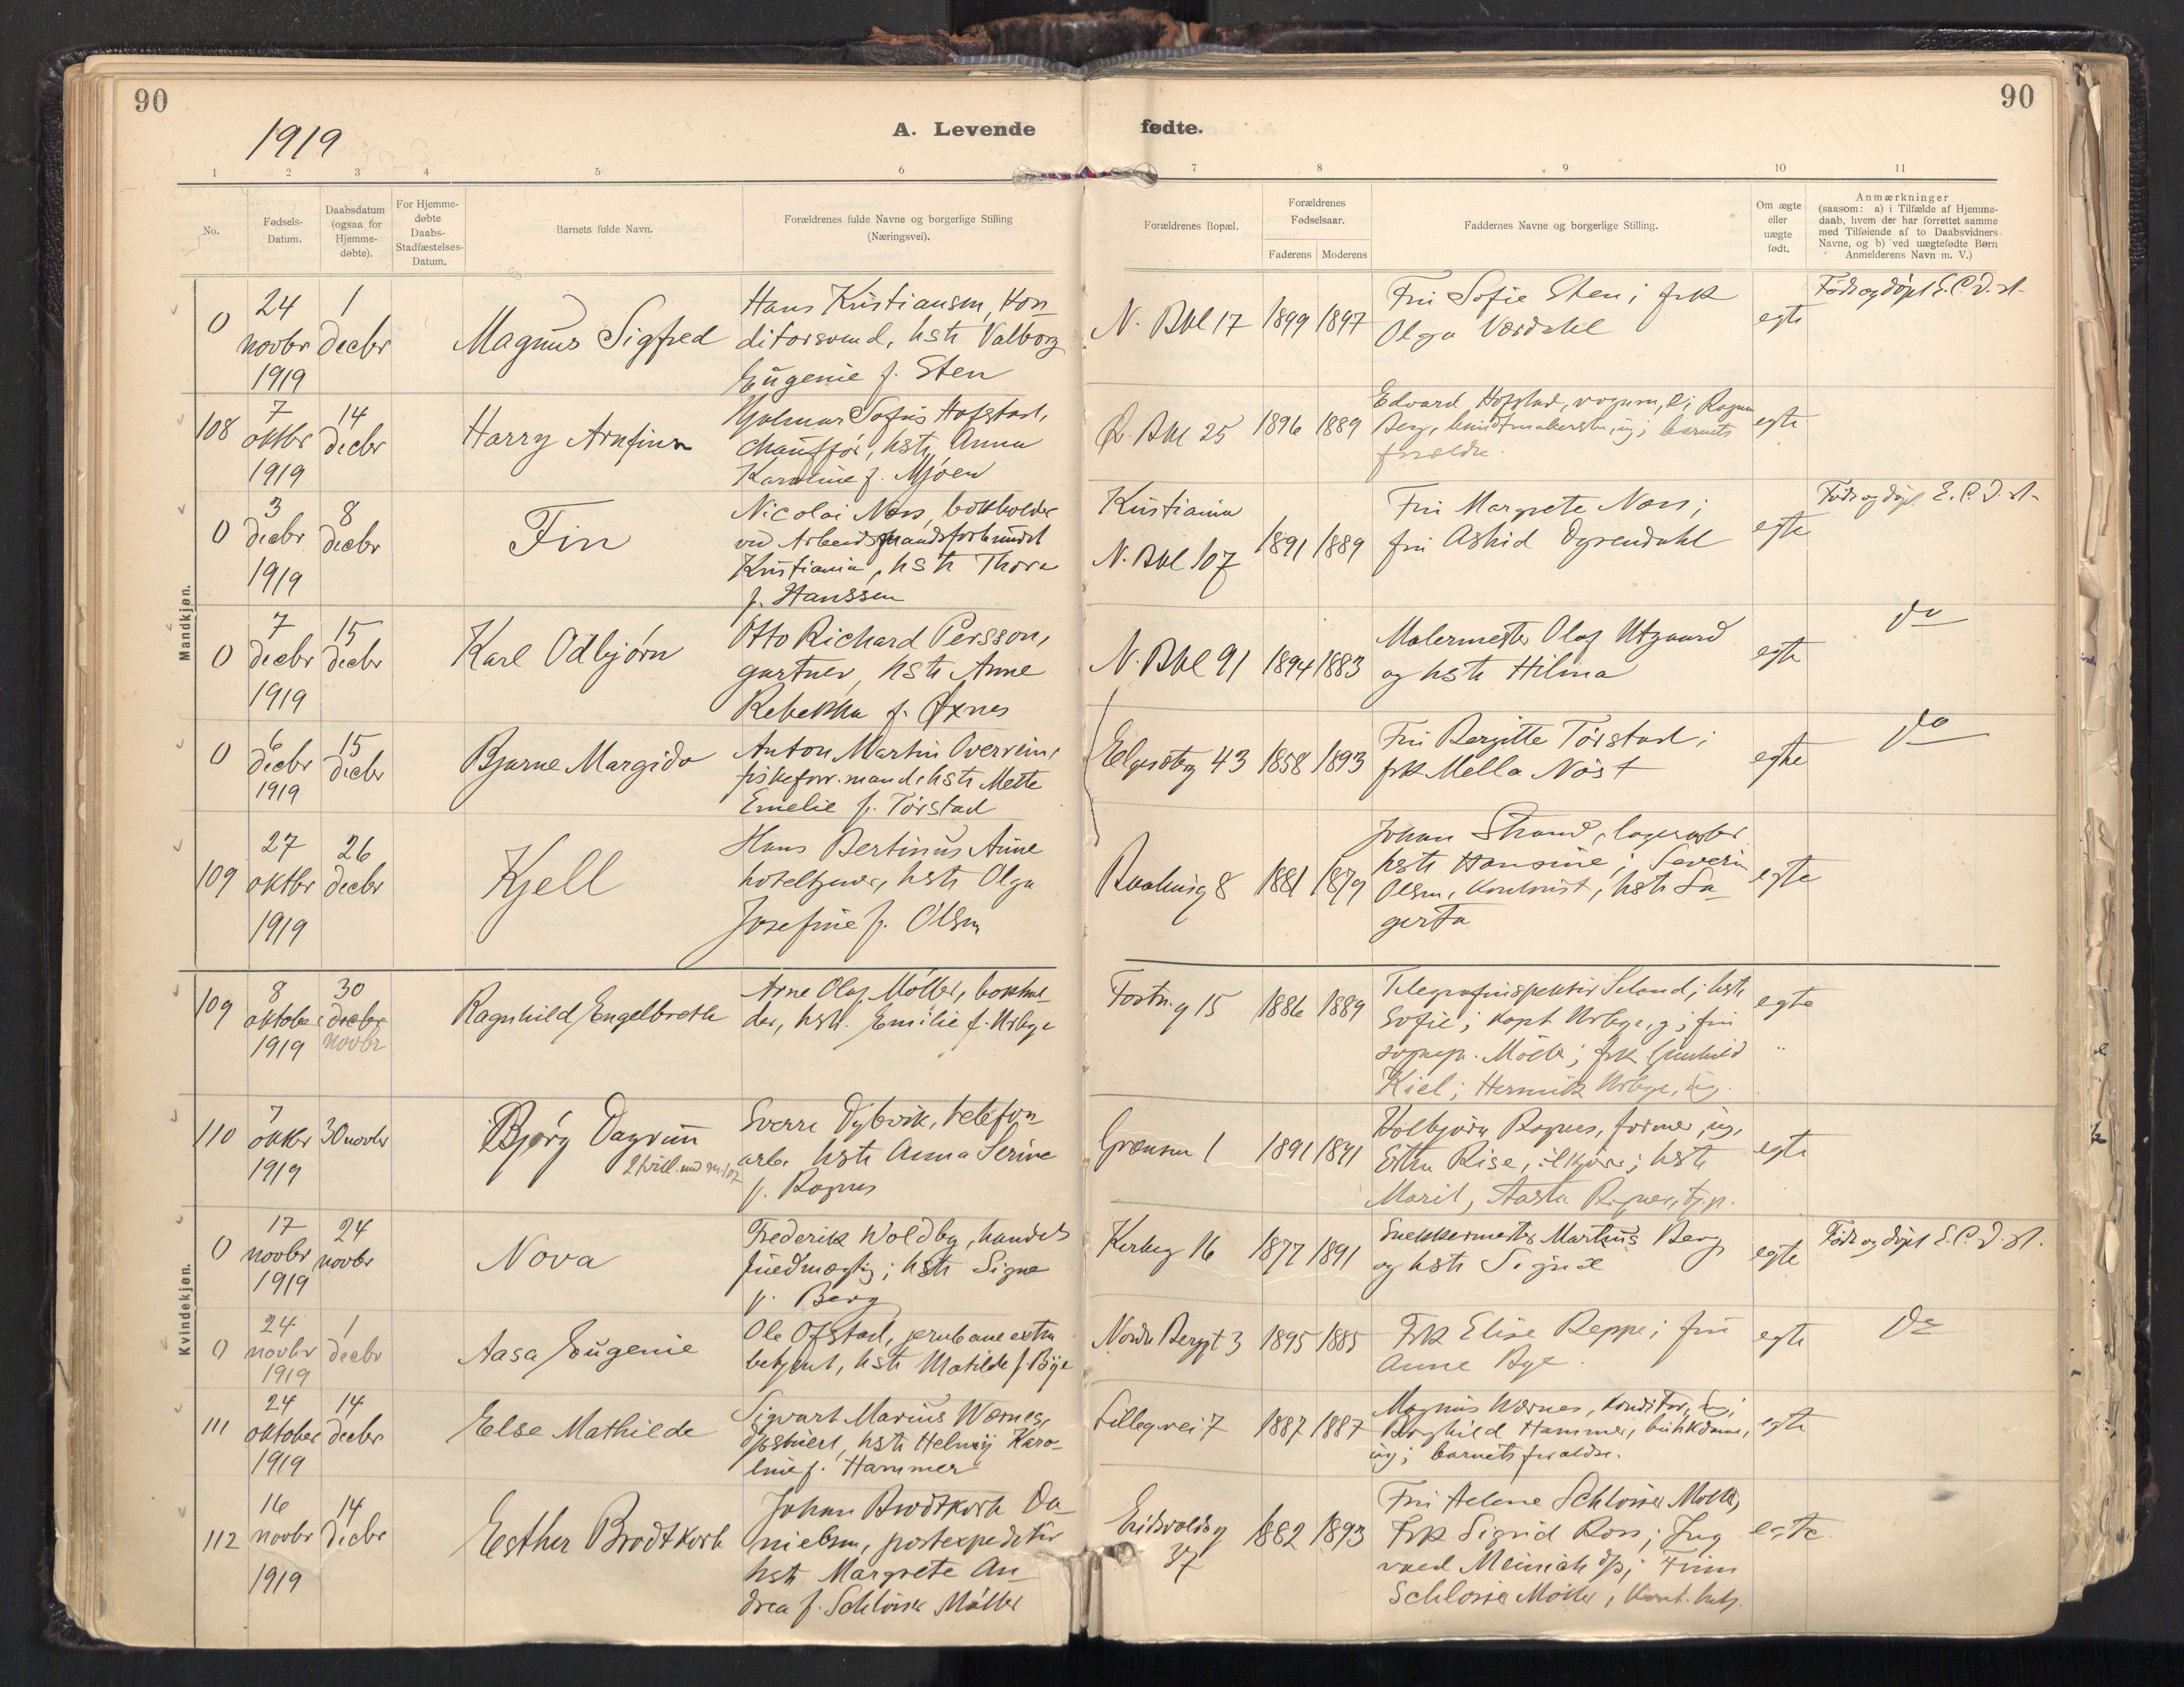 90
90
1919
A. Levende fødte.
1 2 3 4 5 6 7 8 9 10 11
No.
Fødsels-
Datum.
Daabsdatum
(ogsaa for
Hjemme-
døbte).
For Hjemme-
døbte
Daabs-
Stadfæstelses-
Datum.
Barnets fulde Navn.
Forældrenes fulde Navne og borgerlige Stilling
(Næringsvei).
Forældrenes Bopæl.
Forældrenes
Fødselsaar.
Faderens
Moderens
Faddernes Navne og borgerlige Stilling.
Om ægte
eller
uægte
født.
Anmærkninger
(saasom: a) i Tilfælde af Hjemme-
daab, hvem der har forrettet samme
med Tilføiende af to Daabsvidners
Navne, og b) ved uægtefødte Børn
Anmelderens Navn m. V.)
Mandkjøn.
0
24
novbr
1919
1
decbr
Magnus Sigfred
Hans Kristiansen, kon
ditorsvend, hstr Valborg
Eugenie f. Sten
N. Bkl 17
1899
1897
Fru Sofie Sten; frk
Olga Værdahl
egte
Født og døpt E. C. D. st.
108
7
oktbr
1919
14
decbr
Harry Arnfinn
Hjalmar Sofus Hofstad,
chauffør, hstr Anna
Karoline f. Mjøen
Ø. Bkl 25
1896
1889
Edvard Hofstad, vognm,
Berg, ug; barnets
forældre.
egte
0
3
decbr
1919
8
decbr
Fin
Nicolai Næss, bokholder
ved Arbeidsmandsforbundet
Kristiania, hstr Thora
f. Hanssen
Kristiania
N. Bkl 107
1891
1889
Fru Margrete Næss;
fru Astrid Dyrendahl
egte
Født og døpt E. C. D. st.
0
7
decbr
1919
15
decbr
Karl Odbjørn
Otto Richard Persson,
gartner, hstr Anne
Rebekka f. Øxnes
N. Bkl 91
1894
1883
Malermester Olaf Utgaard
og hstr Hilma
egte
do
0
6
decbr
1919
15
decbr
Bjarne Margido
Anton Martin Overvein,
fiskeforr.mand, hstr Mette
Emelie f. Tørstad
Elgeseterg 43
1858
1893
Fru Bergitte Tørstad;
frk Mella Nøst
egte
do
109
27
oktbr
1919
26
decbr
Kjell
Hans Bertinus Aune
hoteltjener, hstr Olga
Josefine f. Olsen
8
1881
1879
Johan Strand, lagerarbr
hstr Hansine; Severin
Olsen, kontorist, hstr La-
gerta
egte
Kvindekjøn.
109
8
oktober
1919
30
decbr
novbr
Ragnhild Engelbreth
Arne Olaf Møller, bokhol-
der, hstr. Emilie f. Urbye
15
1886
1889
Telegrafinspektør Seland; hstr
Sofie; kapt Urbye, g; fru
sognepr. Møller; frk Gunhild
Kiel; Henrik Urbye, ug.
egte
110
7
oktbr
1919
30 novbr
Bjørg Dagrun
2 tvill. med m. 107
Sverre Dybvik, telefon
arbr hstr Anna Serine
f. Ragnes
Grensen 1
1891
1891
Kolbjørn Ragnes, former, ug,
Rise, hstr
Marit, Aasta Ragnes, tjp.
egte
0
17
novbr
1919
24
novbr
Nova
Frederik Woldby, handels
fuldmægtig; hstr Signe
f. Berg
Kirkeg 16
1877
1891
Snekkermester Martius Berg
og hstr Signe
egte
Født og døpt E. C. D. st.
0
24
novbr
1919
1
decbr
Aasa Eugenie
Ole Ofstad, jernbane extra
betjent, hstr Matilde f. Bye
Nordre Berggt 3
1895
1885
Frk Elise Reppe; fru
Anne Bye.
egte
do
111
24
oktober
1919
14
decbr
Else Mathilde
Sigvart Marius Wærnes,
hstr Helmij Karo-
line f. Hammer
Lillegvei 7
1887
1887
Magnus Wærnes, konditor,
Borghild Hammer, butikdame,
ug; barnets forældre.
egte
112
16
novbr
1919
14
decbr
Esther Brodtkorb
Johan Brodtkorb Da-
nielsen, postexpeditør
hstr Margrete An-
drea f. Schlösser Møller
Eidsvoldsg
37
1882
1893
Fru Helene Schlösser Møller,
Frk Sigrid Ross; Ing
vald Meinich Finn
Schlösser Møller,
egte